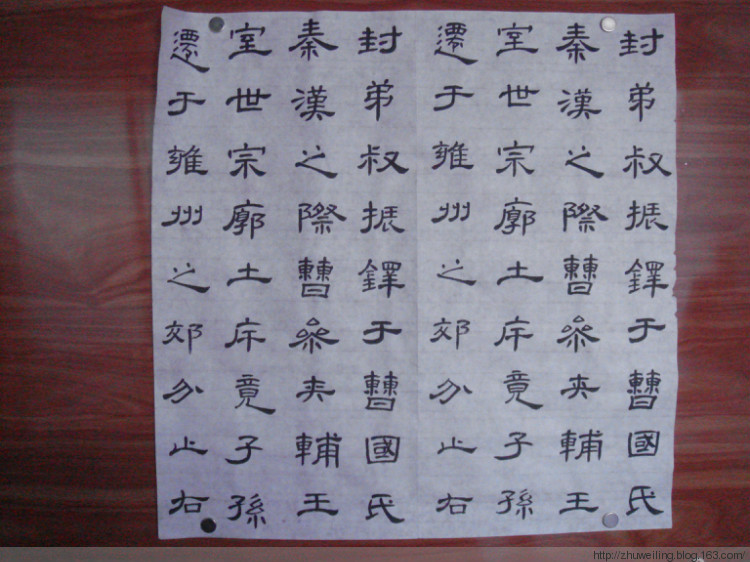 封弟叔振鐸于曹國氏
秦漢之際曹參夾輔王
室世宗廓土斥竟子孫
遷于雍州之郊分止右
封弟叔振鐸于曹國氏
秦漢之際曹參夾輔王
室世宗廓土斥竟子孫
遷于雍州之郊分止右
http://zhuweiling.blog.163.com/